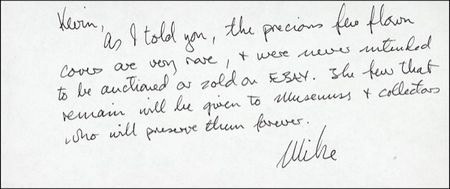 Kevin,
As I told you, the precious few flown
covers are very rare, & were never intended
to be auctioned or sold on EBAY. The few that
remain will be given to Museums & collectors
who will preserve them forever.
Mike